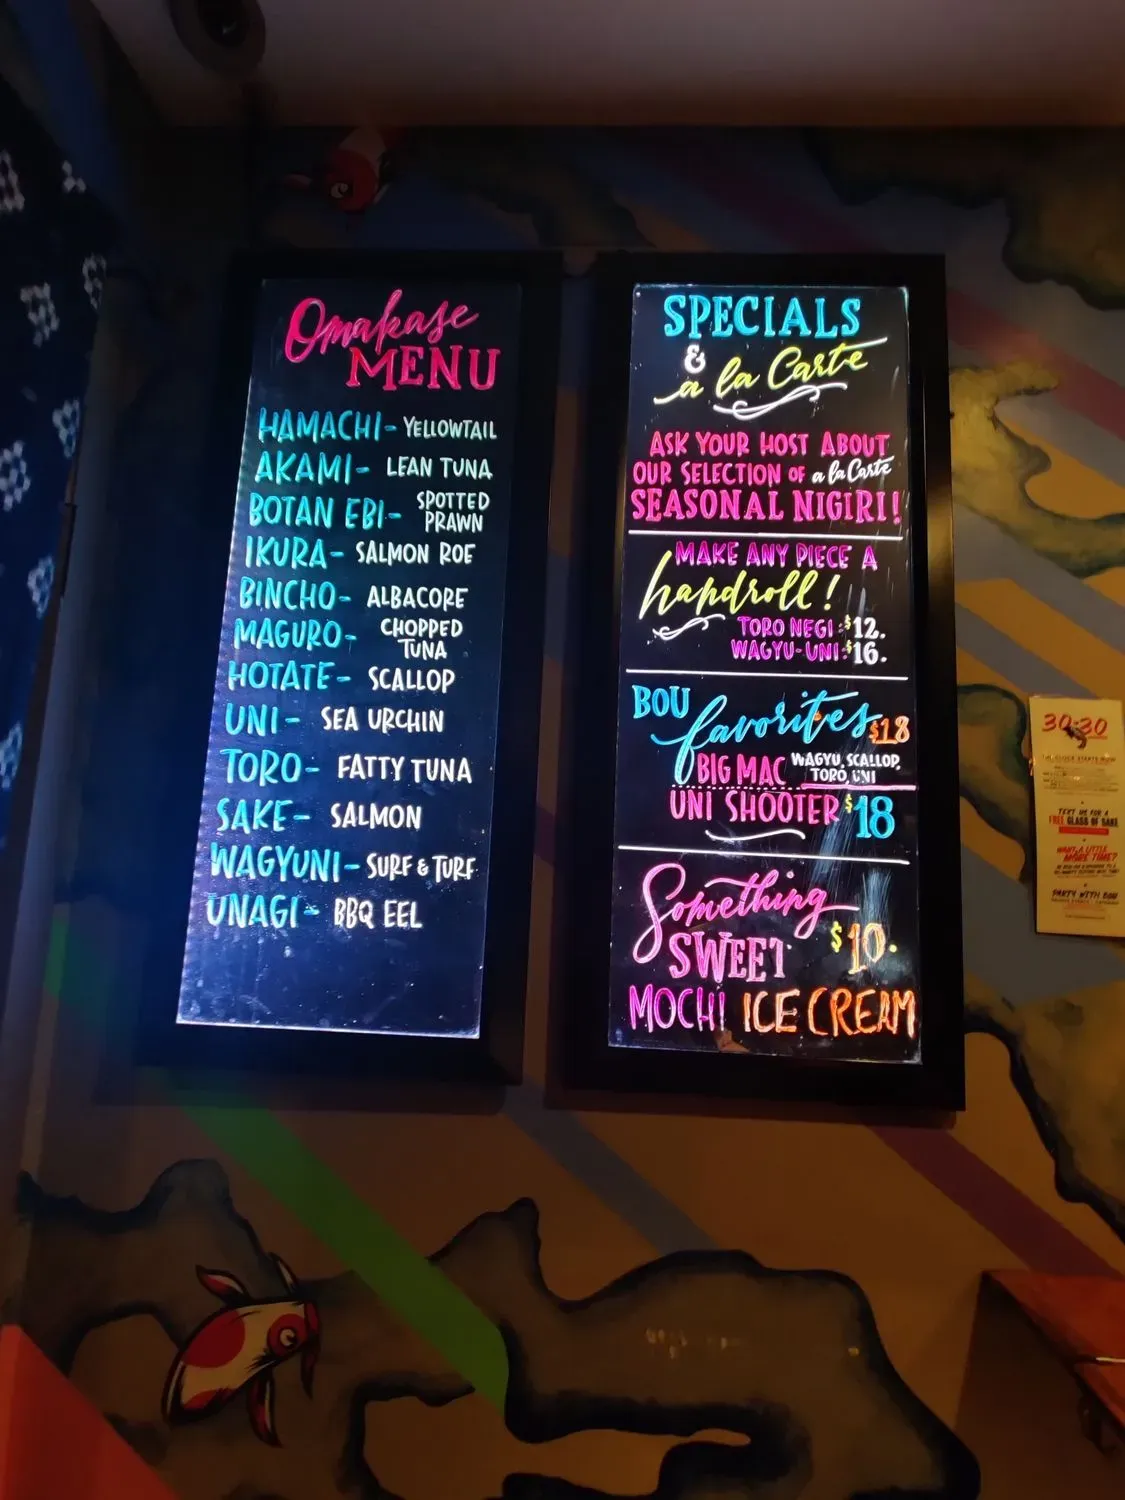 Omakase
MENU
HAMACHI- YELLOWTAIL
AKAMI- LEAN TUNA
BOTAN EBI- SPOTTED
PRAWN
IKURA- SALMON ROE
BINCHO- ALBACORE
MAGURO- CHOPPED
TUNA
HOTATE- SCALLOP
UNI- SEA URCHIN
TORO- FATTY TUNA
SAKE- SALMON
WAGYUNI- SURF & TURF
UNAGI- BBQ EEL
SPECIALS
&
a la Carte
ASK YOUR HOST ABOUT
OUR SELECTION OF a la Carte
SEASONAL NIGIRI!
MAKE ANY PIECE A
handroll!
TORO NEGI: $12.
WAGYU-UNI: $16.
BOU
favorites $18
BIG MAC WAGYU, SCALLOP,
TORO, UNI
UNI SHOOTER $18
Something
SWEET $10.
MOCHI ICE CREAM
30:30
THE CLOCK STARTS NOW
TEXT US FOR A
FREE GLASS OF SAKE
WANT A LITTLE
MORE TIME?
PARTY WITH BOU